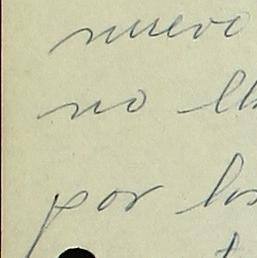 nuevo
no ll
por los